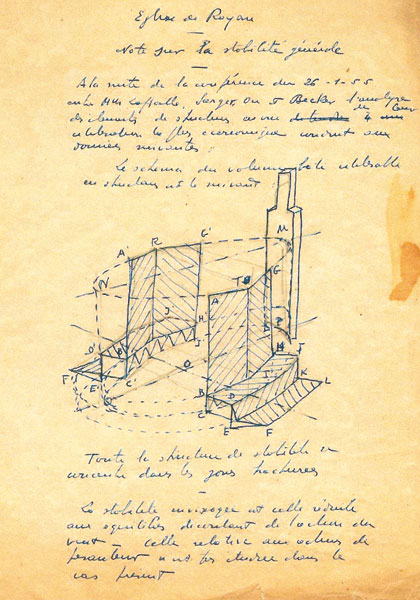 Eglise de Royan
Note sur la stabilité générale
A la suite de la conférence du 26-1-55
entre MM Laffaille, Sarger, Ou et Becker l'analyse
des éléments de structure
utilisation la plus économique conduit aux
données suivantes :
Le schéma du volume utilisable
en structure est le suivant
G'
R
A'
M
N
G
T
S
A
J
H'
P
I
O'
H
J
B'
I'
F'
E'
C'
O
K
B
D
L
C
E
F
Toute la structure de stabilité se
concentre dans les zones hachurées
La stabilité envisagée est celle réduite
aux équilibres découlant de l'action du
vent - celle relative aux actions de
pesanteur n'est pas étudiée dans le
cas présent